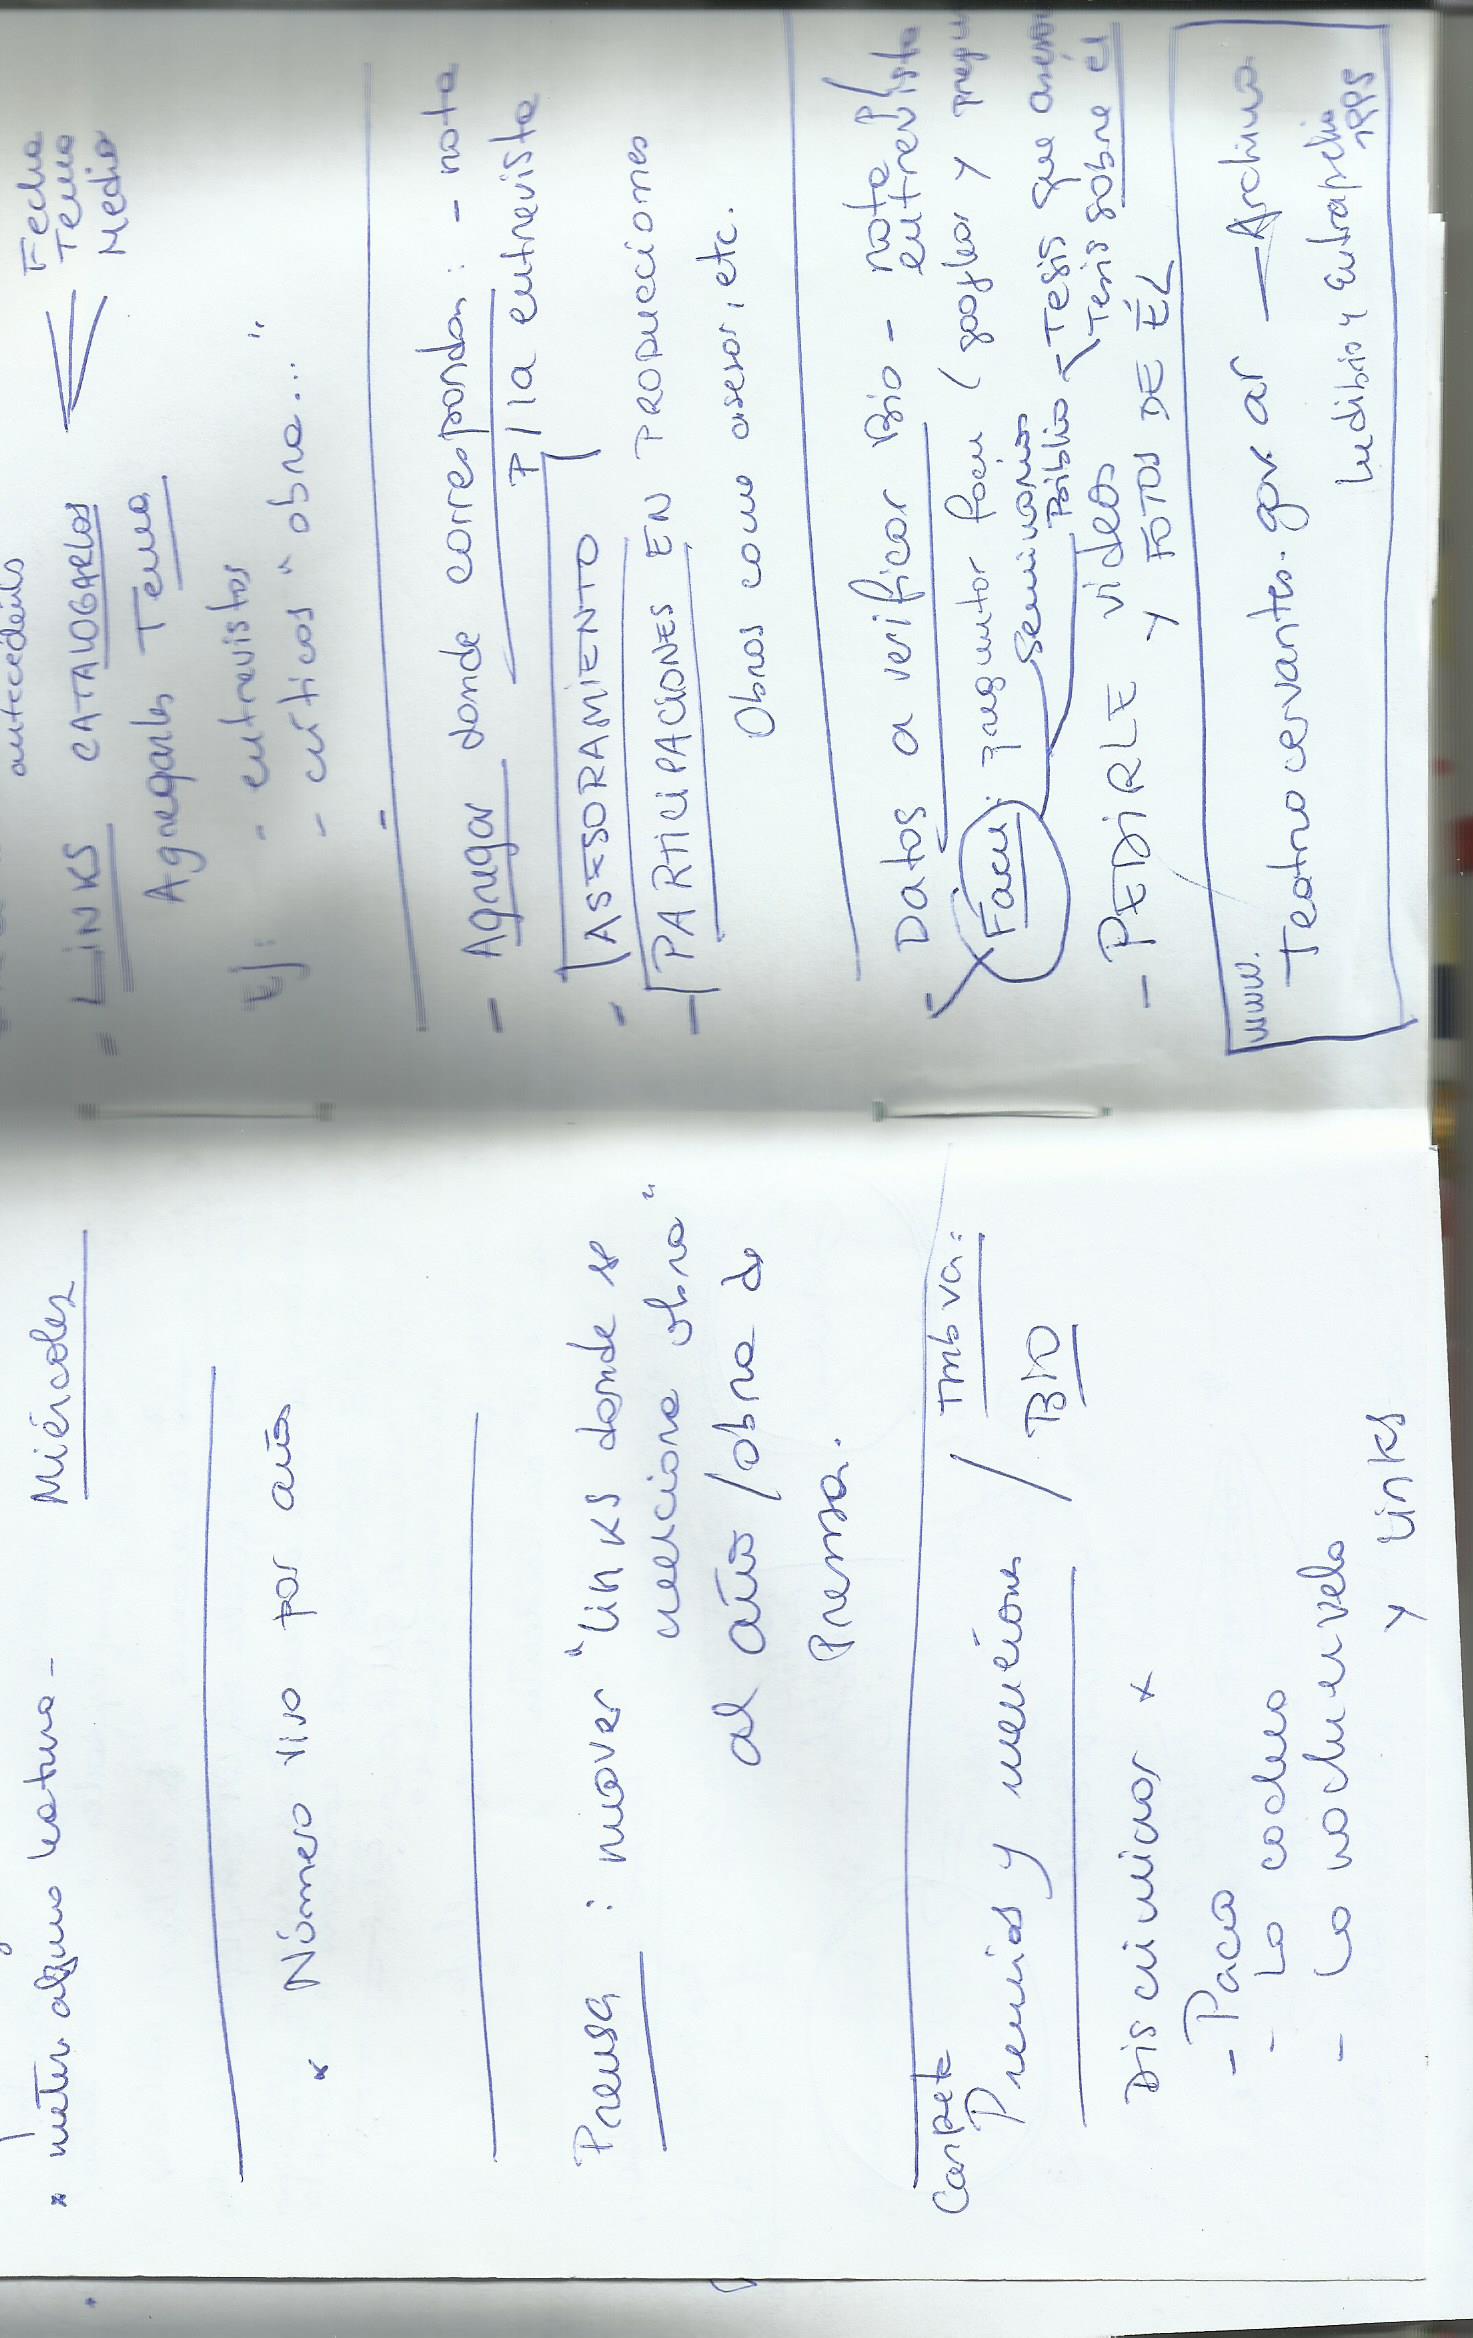 * meter alguno
Miércoles
* Número vivo por años
Prensa : mover "links donde se
menciona obra"
al año / obra de
Prensa.
Carpeta
Premios y menciones / Tmb va:
BIO
Discriminar x
- Paco
- La
- La
y links
antecedents
- LINKS CATALOGARLOS
Fecha
Tema
Medio
Agregarles Tema
Ej: - entrevistas
- críticas "obra..."
- Agregar donde correspondan: - nota
P/la entrevista
- ASESORAMIENTO
- PARTICIPACIONES EN PRODUCCIONES
Obras como asesor, etc.
Datos a verificar Bio - nota
entrevista
- Facu: preguntar Facu (googlear y
Seminarios
Biblio - Tesis que
Tesis sobre él
- PEDIRLE videos
y FOTOS DE ÉL
www.
Teatrocervantes.gov.ar — Archivo
ludibrio y Eutrapelia
1995